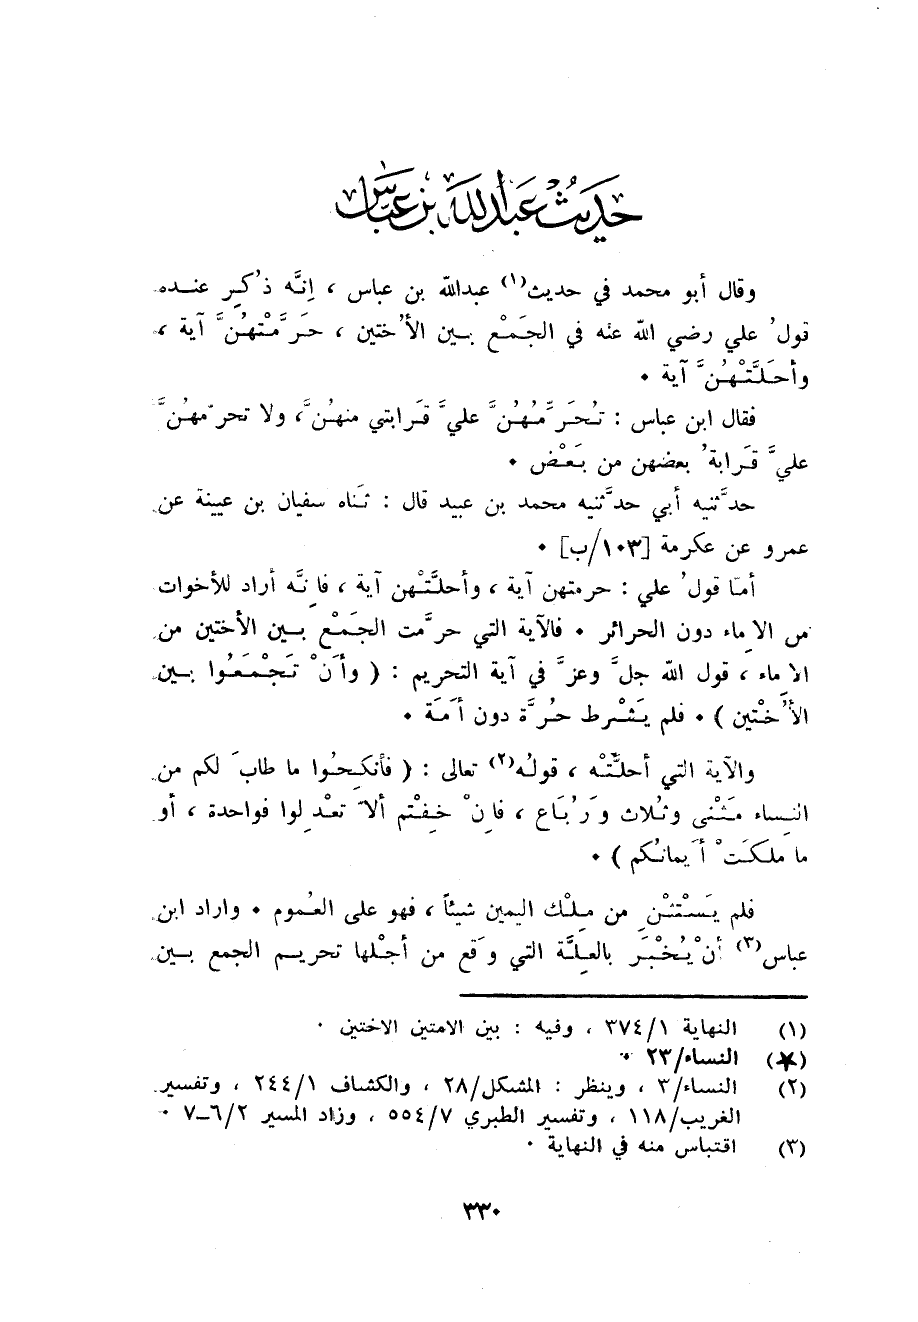 حديث عبدالله بن عباس
وقال أبو محمد في حديث(١) عبدالله بن عباس ، إنَّه ذُكِر عنـده
قولُ علي رضي الله عنه في الجَمْع بـين الأُختين ، حَرَّمَتْهُنَّ آية ،
وأحَلَّتْهُنَّ آية ٠
فقال ابن عباس : تُحَرِّمُهُنَّ عليَّ قَرابتي منهُنَّ ، ولا تحرّمهُنَّ
عليَّ قَرابةُ بعضهن من بَعْض ٠
حدَّثنيه أبي حدَّثنيه محمد بن عبيد قال : ثَناه سفيان بن عيينة عن
عمرو عن عكرمة [١٠٣/ب] ٠
أمّا قولُ علي : حرمتهن آية ، وأحلَّتْهن آية ، فانَّه أراد للأخوات
من الإماء دون الحرائر ٠ فالآية التي حرَّمت الجَمْع بـين الأختين من
الإماء ، قول الله جلَّ وعزَّ في آية التحريم : ( وأَنْ تَجْمَعُوا بـين
الأُخْتَين ) ٠ فلم يَشْرط حُرَّة دون أَمَة ٠
والآية التي أحلتْه ، قولُه(٢) تعالى : ( فأنكِحُوا ما طابَ لكم من
النساء مَثْنى وثُلاث وَرُباع ، فإنْ خِفتم ألاّ تعدلوا فواحدة ، أو
ما ملكَتْ أَيمانُكم ) ٠
فلم يَسْتَثْنِ من مِلْك اليمين شيئاً ، فهو على العُموم ٠ واراد ابن
عباس(٣) أنْ يُخْبَرَ بالعِلَّة التي وَقع من أجْلها تحريم الجمع بـين
(١) النهاية ٣٧٤/١ ، وفيه : بين الامتين الاختين ٠
(★) النساء/٢٣ ٠
(٢) النساء/٣ ، وينظر : المشكل/٢٨ ، والكشاف ٢٤٤/١ ، وتفسير
الغريب/١١٨ ، وتفسير الطبري ٥٥٤/٧ ، وزاد المسير ٦/٢_٧ ٠
(٣) اقتباس منه في النهاية ٠
٣٣٠